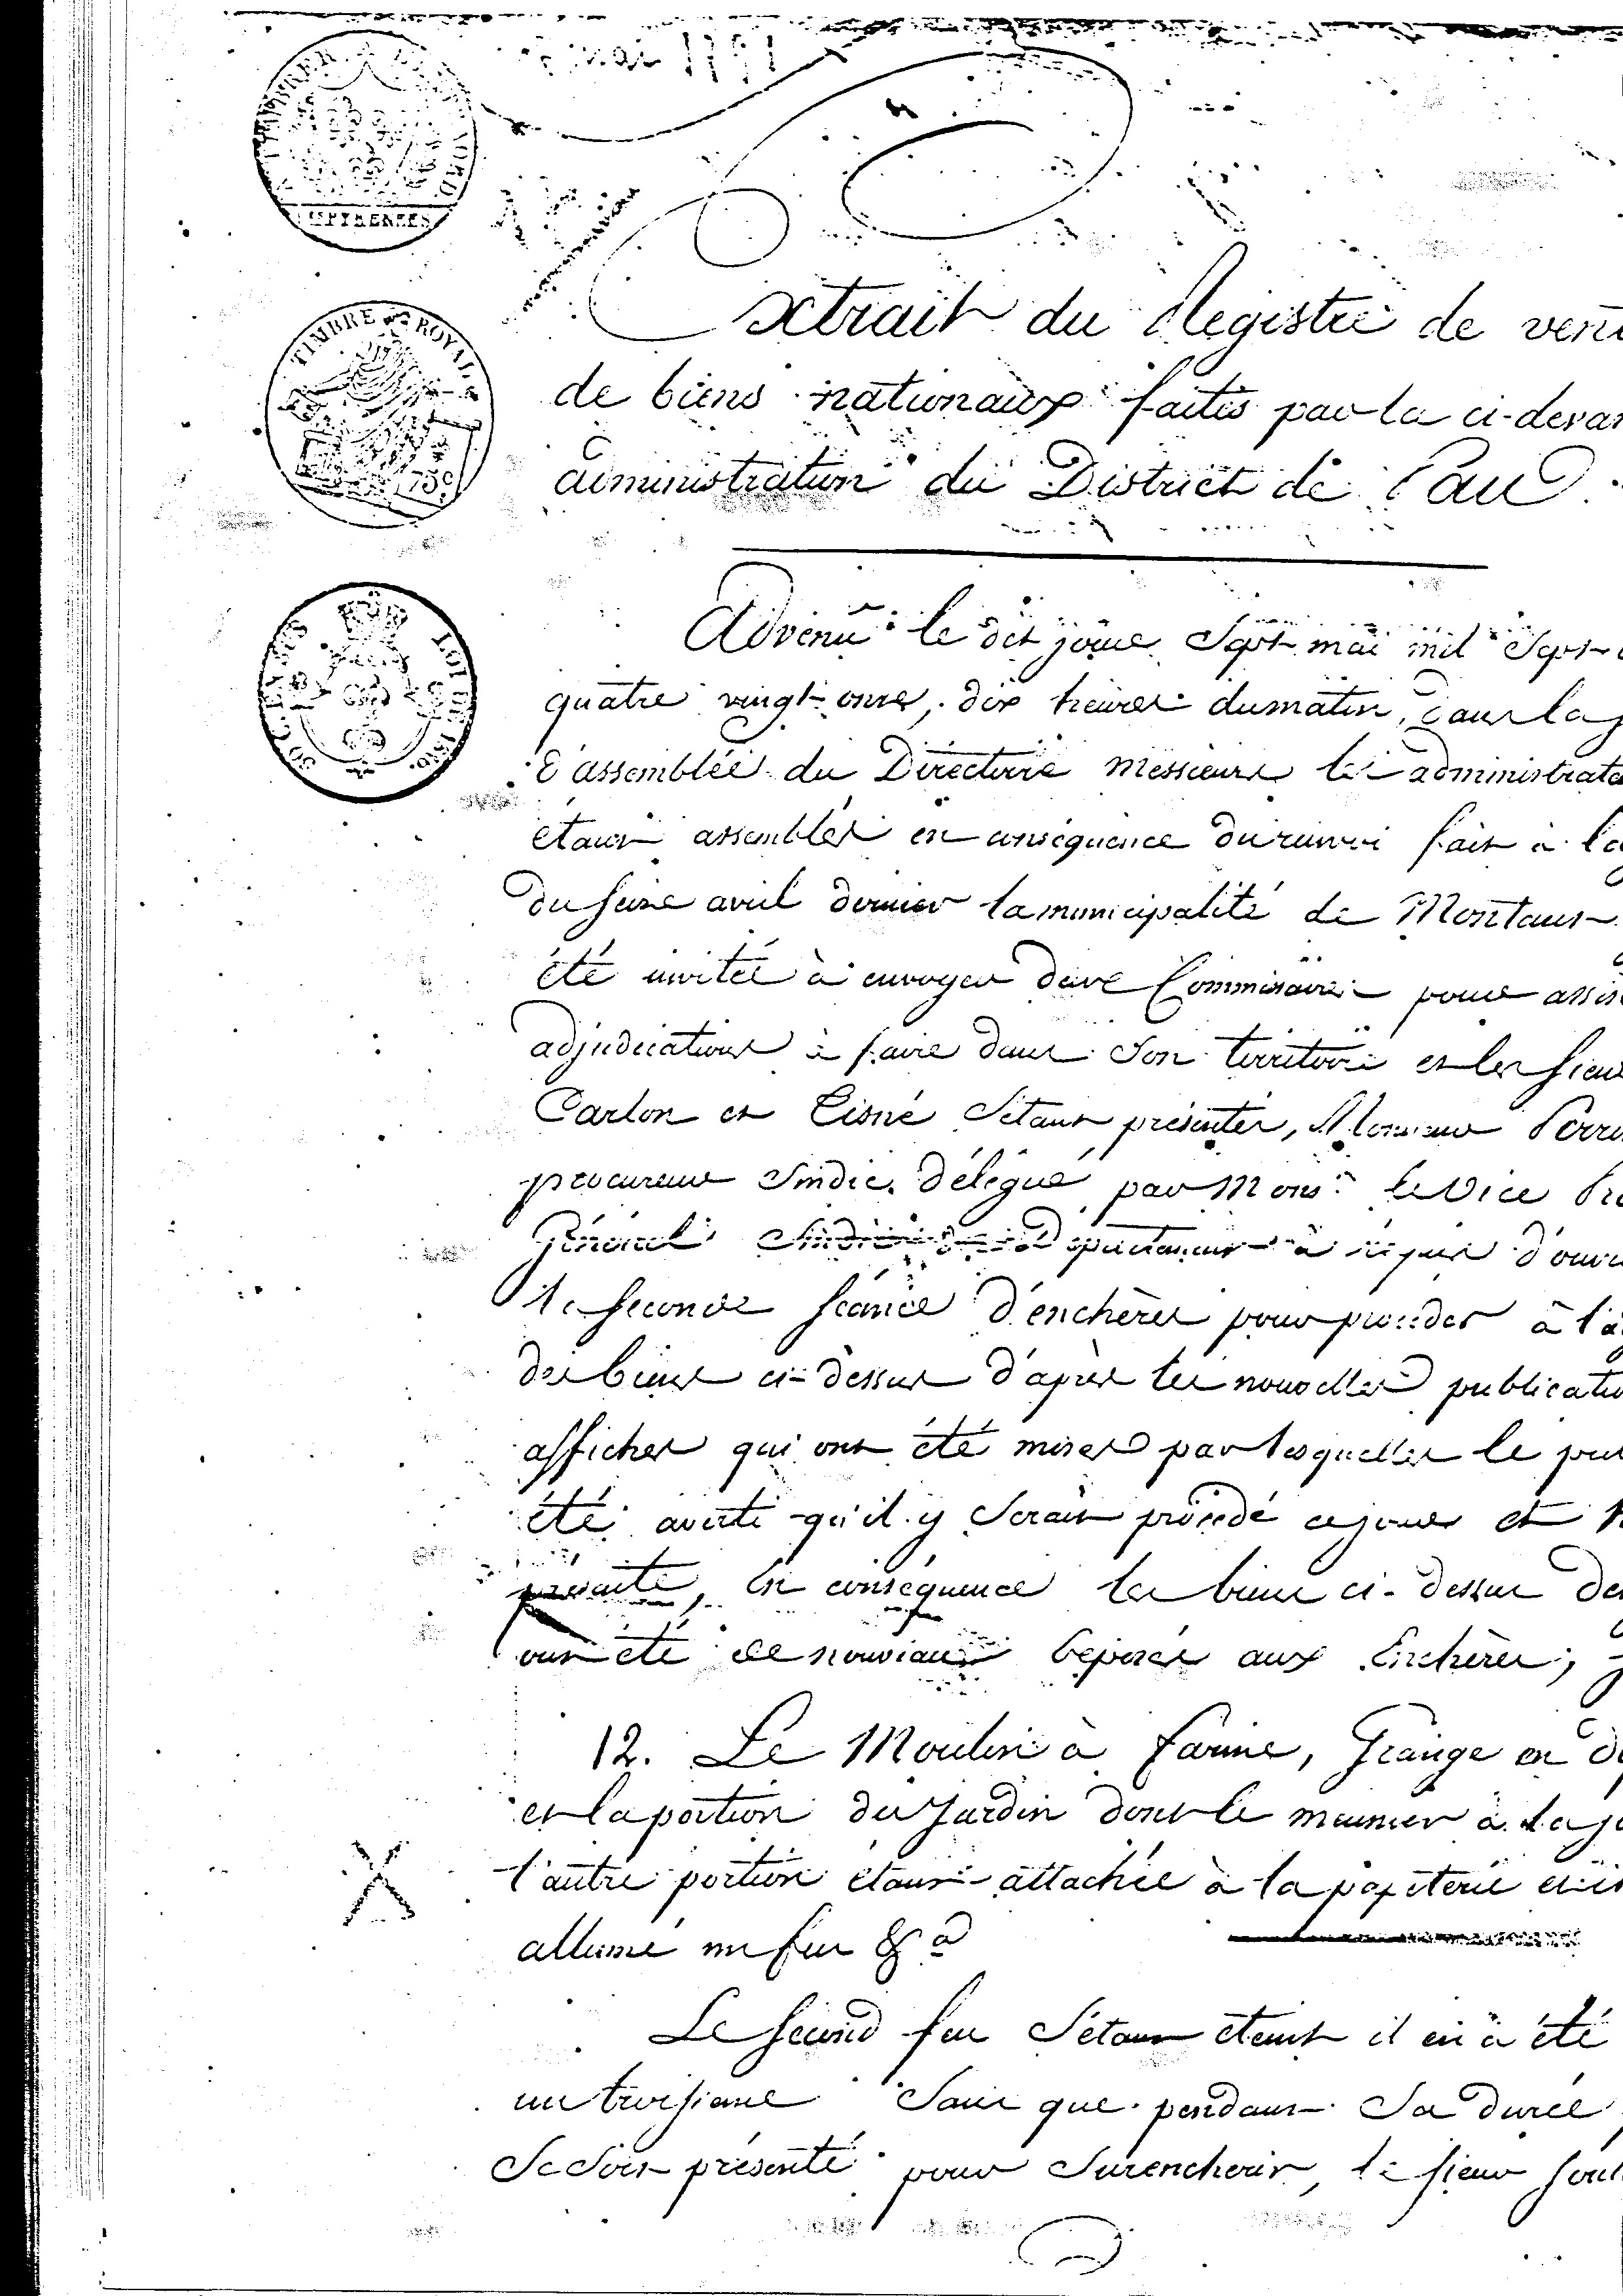 mai 1791
TIMBRE ROYAL
75c
Extrait du Registre de vent
de biens nationaux faites par la ci-devan
administration du District de Pau.
Advenu le dit jour Sept mai mil Sept
quatre vingt onze, dix heures du matin, dans la
d'assemblée du Directoire messieurs les administrate
étant assemblés en conséquence du renvoi fait à la
du seize avril dernier la municipalité de Montaut
été invitée à envoyer deux Commissaires pour assis
adjudications à faire dans Son territoire et les sieu
Carlon et Cisné S'étant présentés, Monsieur Perr
procureur Sindic délégué par Mons. le Vice Pro
Général Sindic du Département à requis d'ouvri
la seconde séance d'enchères pour proceder à l'a
des biens ci-dessus d'après les nouvelles publicatio
affiches qui ont été mises par lesquelles le pu
été averti qu'il y Serait procédé ce jour et h
présente, En conséquence les biens ci-dessus de
ont été de nouveau exposés aux Enchères,
12. Le Moulin à farine, Grange en d
et la portion du Jardin dont le meunier à la jo
l'autre portion étant attachée à la papeterie
allumé un feu &a
Le Second feu S'étant éteint il en à été
un troisième Sans que pendant Sa durée
Se Soit présenté pour Surencherir, le sieur